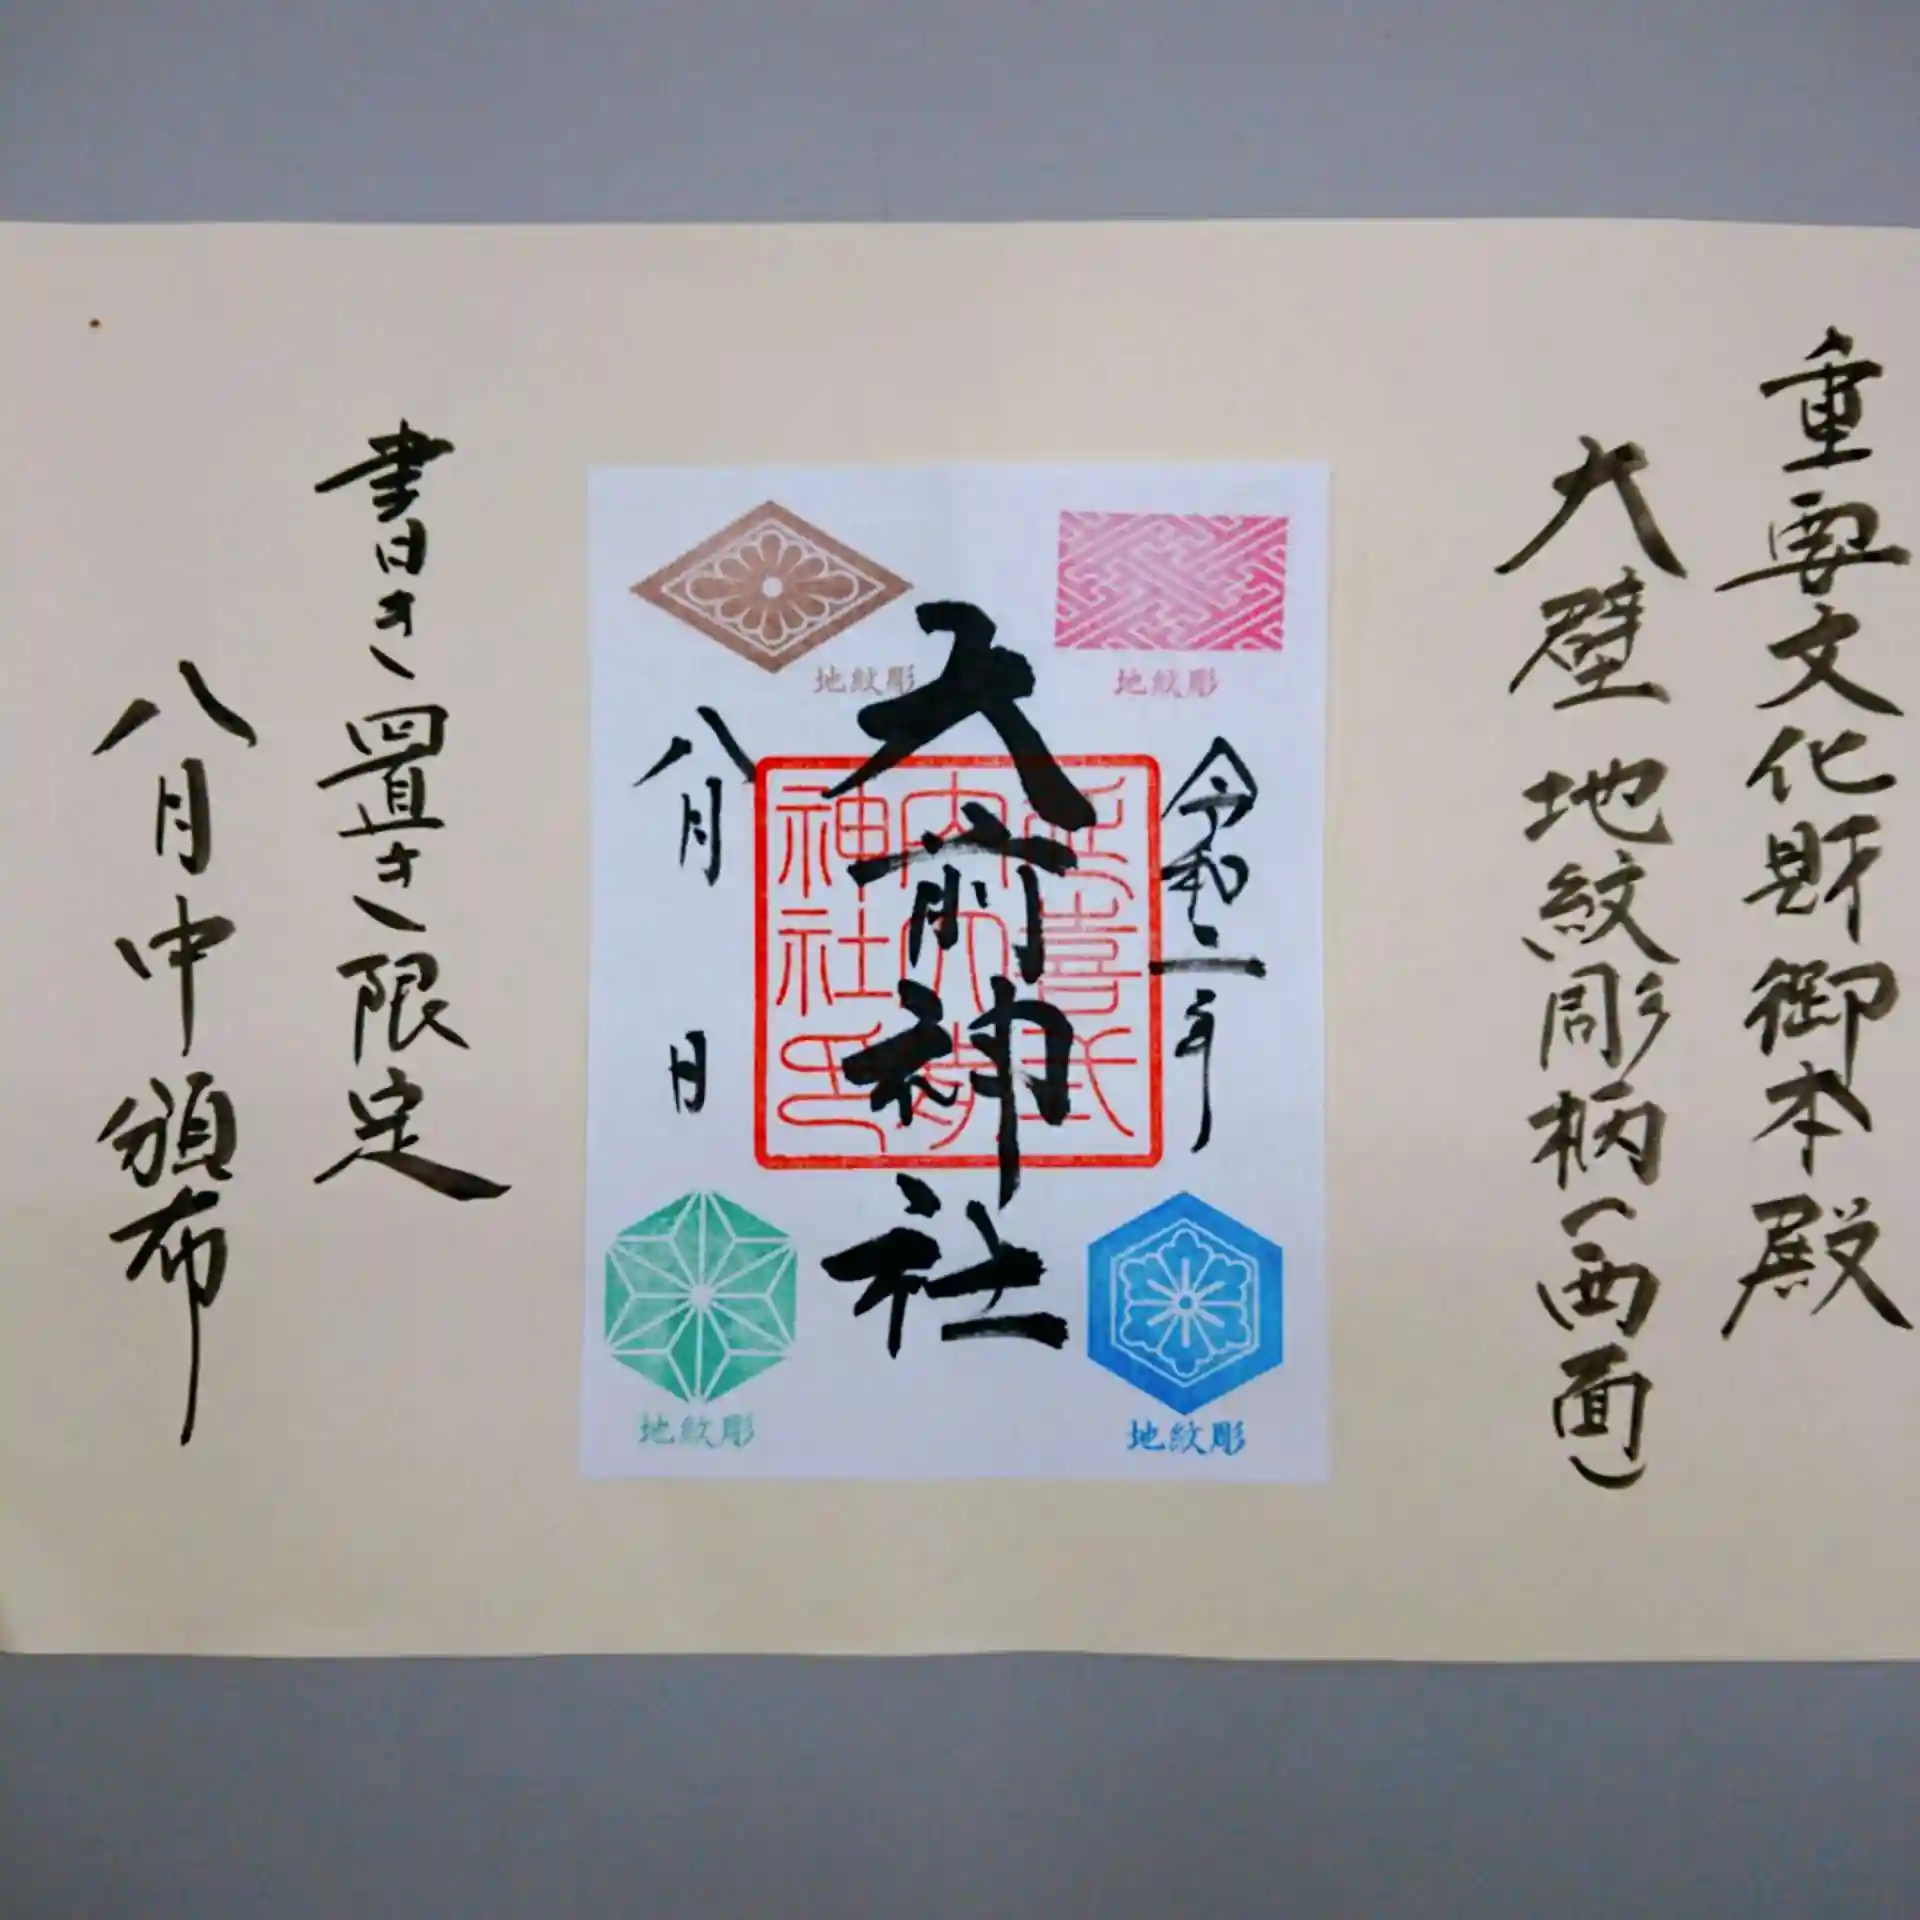 重要文化財御本殿
大壁 地紋彫柄(西面)
地紋彫
令和二年
地紋彫
大前神社
延喜式
内大前
神社印
地紋彫
八月 日
地紋彫
書き置き限定
八月中頒布